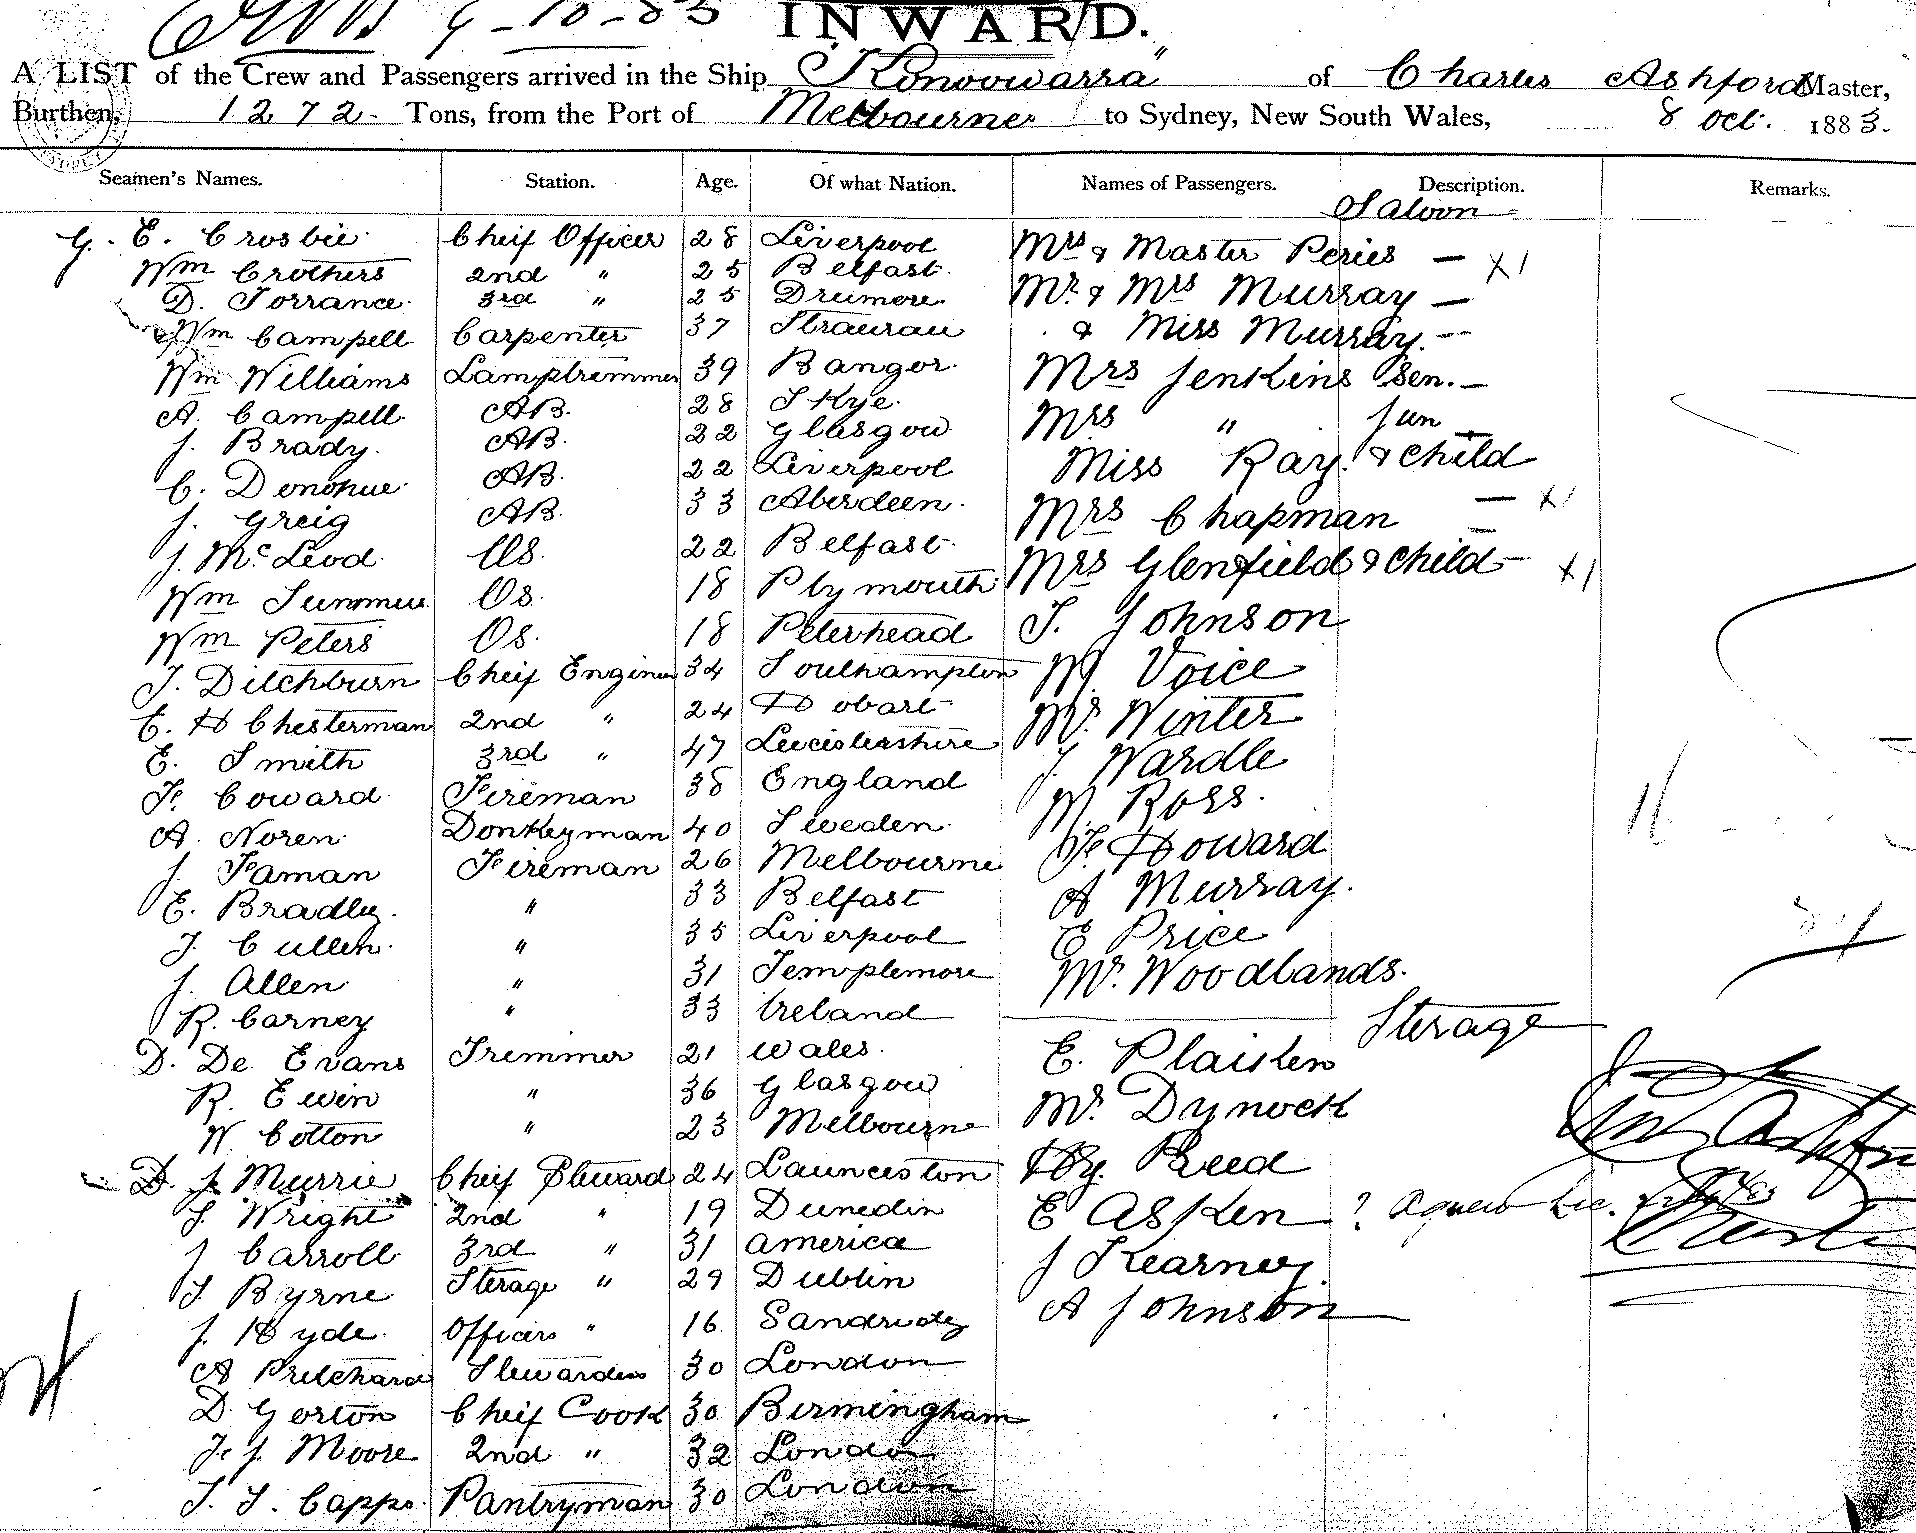 9-10-83 INWARD.
A LIST of the Crew and Passengers arrived in the Ship "Konoowarra" of Charles Ashford Master,
Burthen, 1272 Tons, from the Port of Melbourne to Sydney, New South Wales, 8 Oct. 1883.
Seamen's Names. Station. Age. Of what Nation. Names of Passengers. Description. Remarks.
Saloon
G. E. Crosbie Cheif Officer 28 Liverpool Mrs & Master Peries — X1
Wm Crothers 2nd " 25 Belfast Mr. & Mrs Murray —
D. Torrance 3rd " 25 Drumore & Miss Murray. —
Wm Campell Carpenter 37 Stranrau
Wm Williams Lamptrimmer 39 Bangor Mrs Jenkins Sen. —
A. Campell AB. 28 Skye Mrs " Jun —
J. Brady AB. 22 Glasgow Miss Ray. & Child
C. Donohue AB. 22 Liverpool
J. Greig AB. 33 Aberdeen Mrs Chapman — X1
J. McLeod Os. 22 Belfast Mrs Glenfield & Child — X1
Wm Summers Os. 18 Plymouth
Wm Peters Os. 18 Peterhead J. Johnson
J. Ditchburn Cheif Engineer 34 Southampton M. Voice
E. H Chesterman 2nd " 24 Hobart Mr. Winter
E. Smith 3rd " 47 Leicistershire J. Wardle
F. Coward Fireman 38 England M. Ross.
A. Noren Donkeyman 40 Sweden F. Howard
J. Faman Fireman 26 Melbourne A Murray.
E. Bradley " 33 Belfast E Price
J. Cullen " 35 Liverpool Mr. Woodlands.
J. Allen " 31 Templemore
R. Carney " 33 Ireland Sterage
D. De Evans Trimmer 21 Wales E. Plaisten
R. Ewin " 36 Glasgow Mr. Dynock
W Cotton " 23 Melbourne Hy. Reed
D. J. Murrie Cheif Steward 24 Launceston E Asken ?
S. Wright 2nd " 19 Dunedin J Kearney.
J Carroll 3rd " 31 America A Johnson
J. Byrne Sterage " 29 Dublin
J. Hyde Officers " 16 Sandridg
A Pritchard Stewardess 30 London
D. Gorton Cheif Cook 30 Birmingham
F. J. Moore 2nd " 32 London
J. J. Capps. Pantryman 30 London